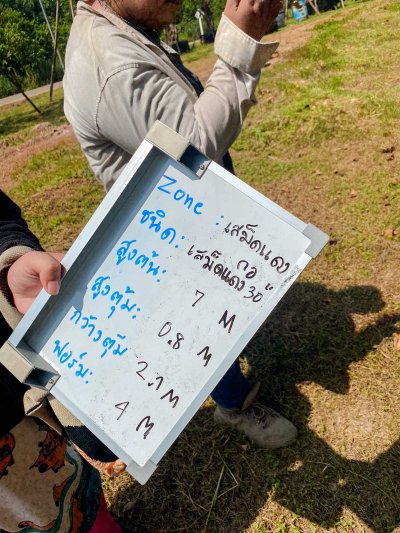 Zone : เสม็ดแดง
ชนิด: เสม็ดแดง กอ 30"
สูงต้น: 7 M
สูงตุ้ม: 0.8 M
กว้างตุ้ม 2.7 M
ฟอร์ม: 4 M